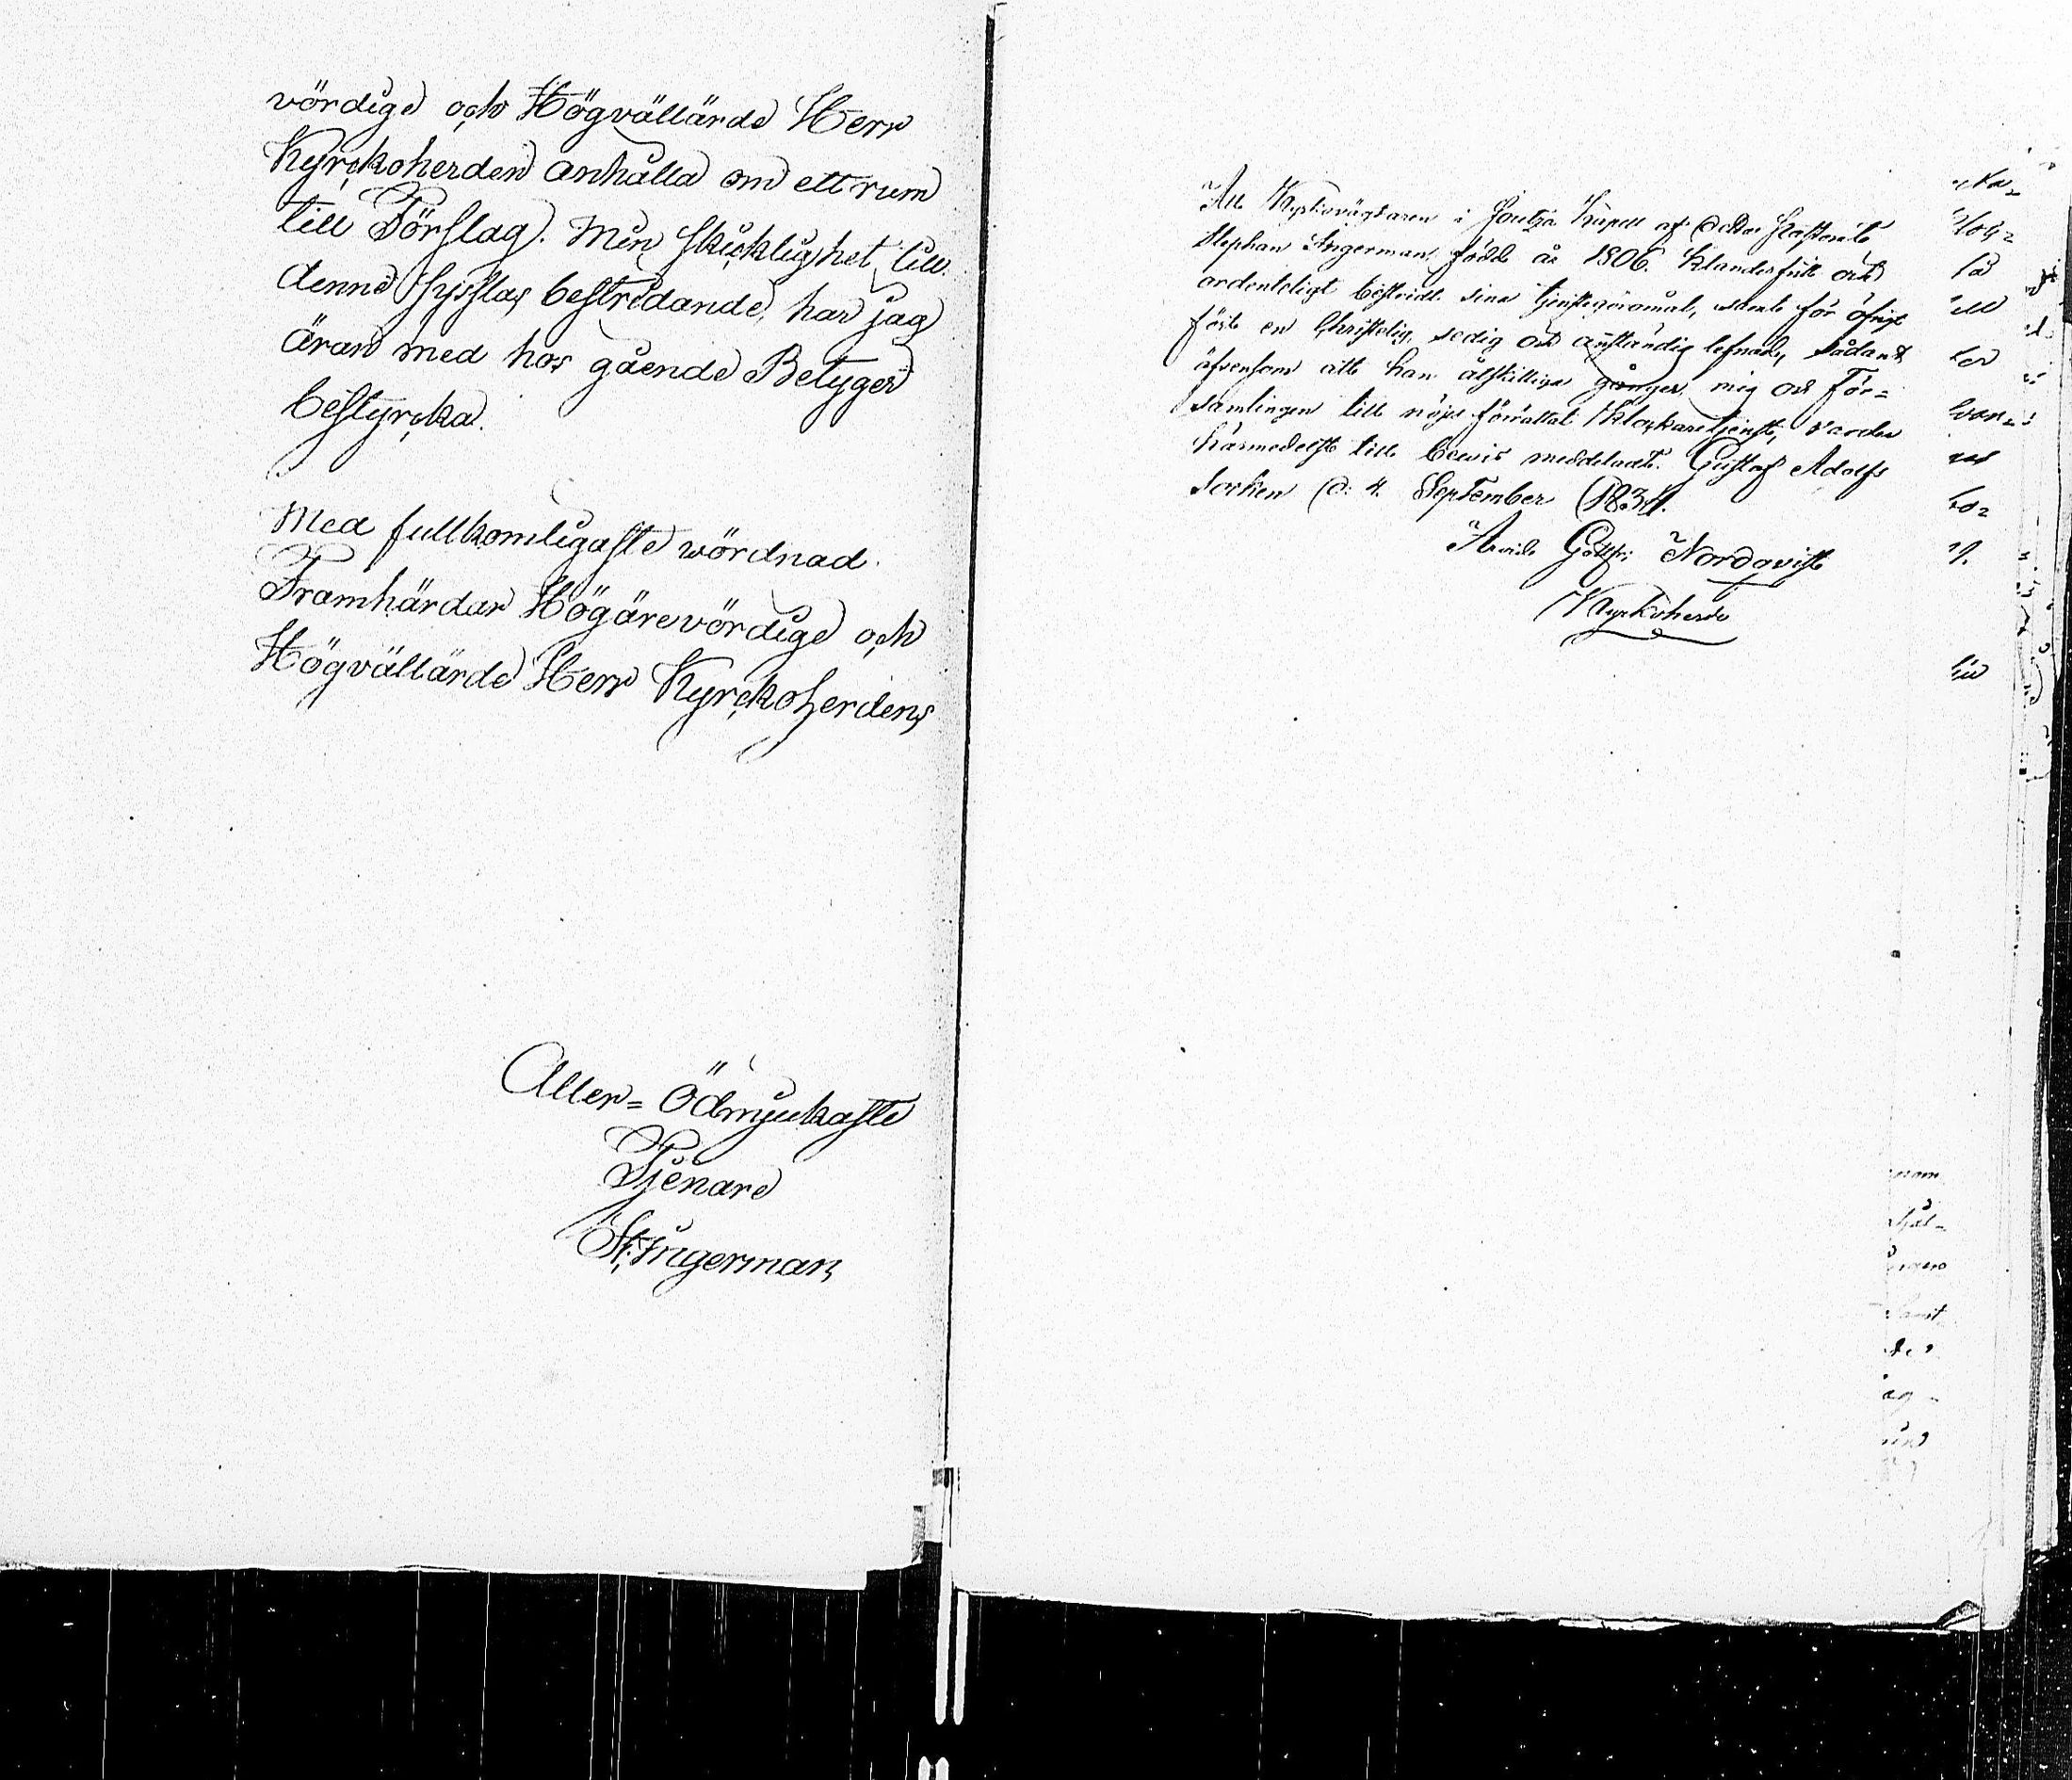 vördige och Högvällärde Herr
Kyrckoherden anhålla om ett rum
till Förslag. Min skicklighet till
denne Sysslas bestridande, har jag
äran med hos gående Betyger
bestyrcka.
Med fullkomligaste wördnad.
Framhärdar Högärevördige och
Högvällärde Herr Kyrckoherdens
Aller= Ödmjukaste
Tjenare
St: Ingerman
Att Kyrkiovägtaren i Joutza Capell af
Stephan Ingerman, född år 1806. klanderfritt och
ordenteligt bestridt sina tjenstegöromål, samt för öfrigt
fört en Christelig, sedig och anständig lefnad, sådant
äfvensom att han åtskilliga gånger, mig och För=
samlingen till nöje förrättat Klockaretjenst, varder
härmedelst till bewis meddeladt. Gustaf Adolfs
Socken d: 4. September 1834.
Arvid Gottfr: Nordqvist
Kyrkoherde